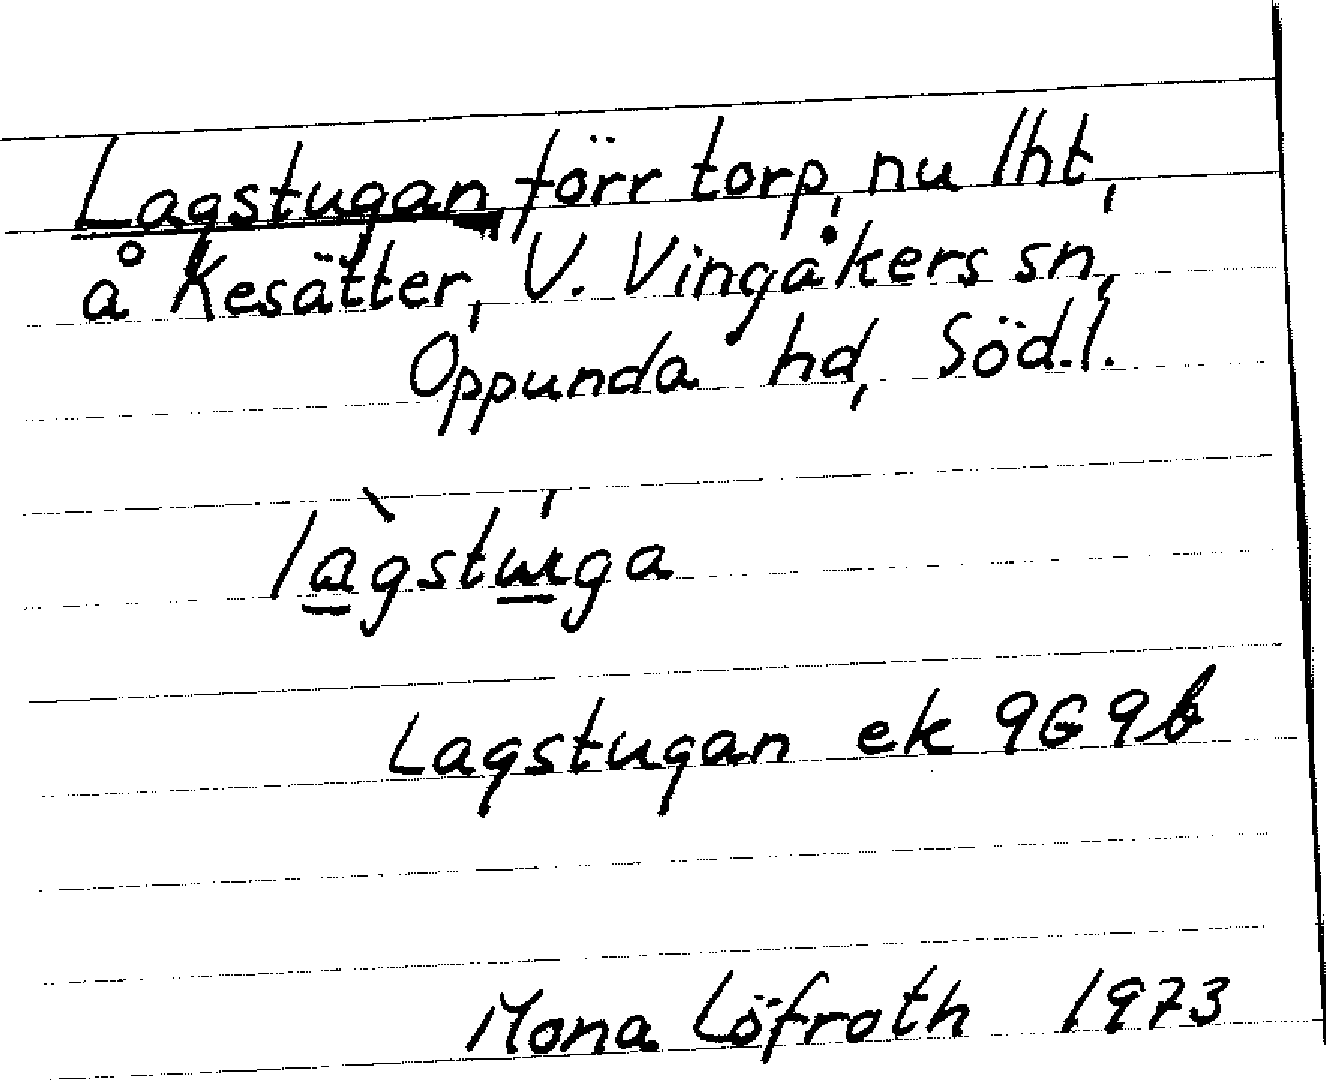 Lagstugan förr torp, nu lht,
å Kesätter, V. Vingåkers sn,
Oppunda hd, Söd.l.
là̠gstú̠ga
Lagstugan ek 9G9b
Mona Löfroth 1973